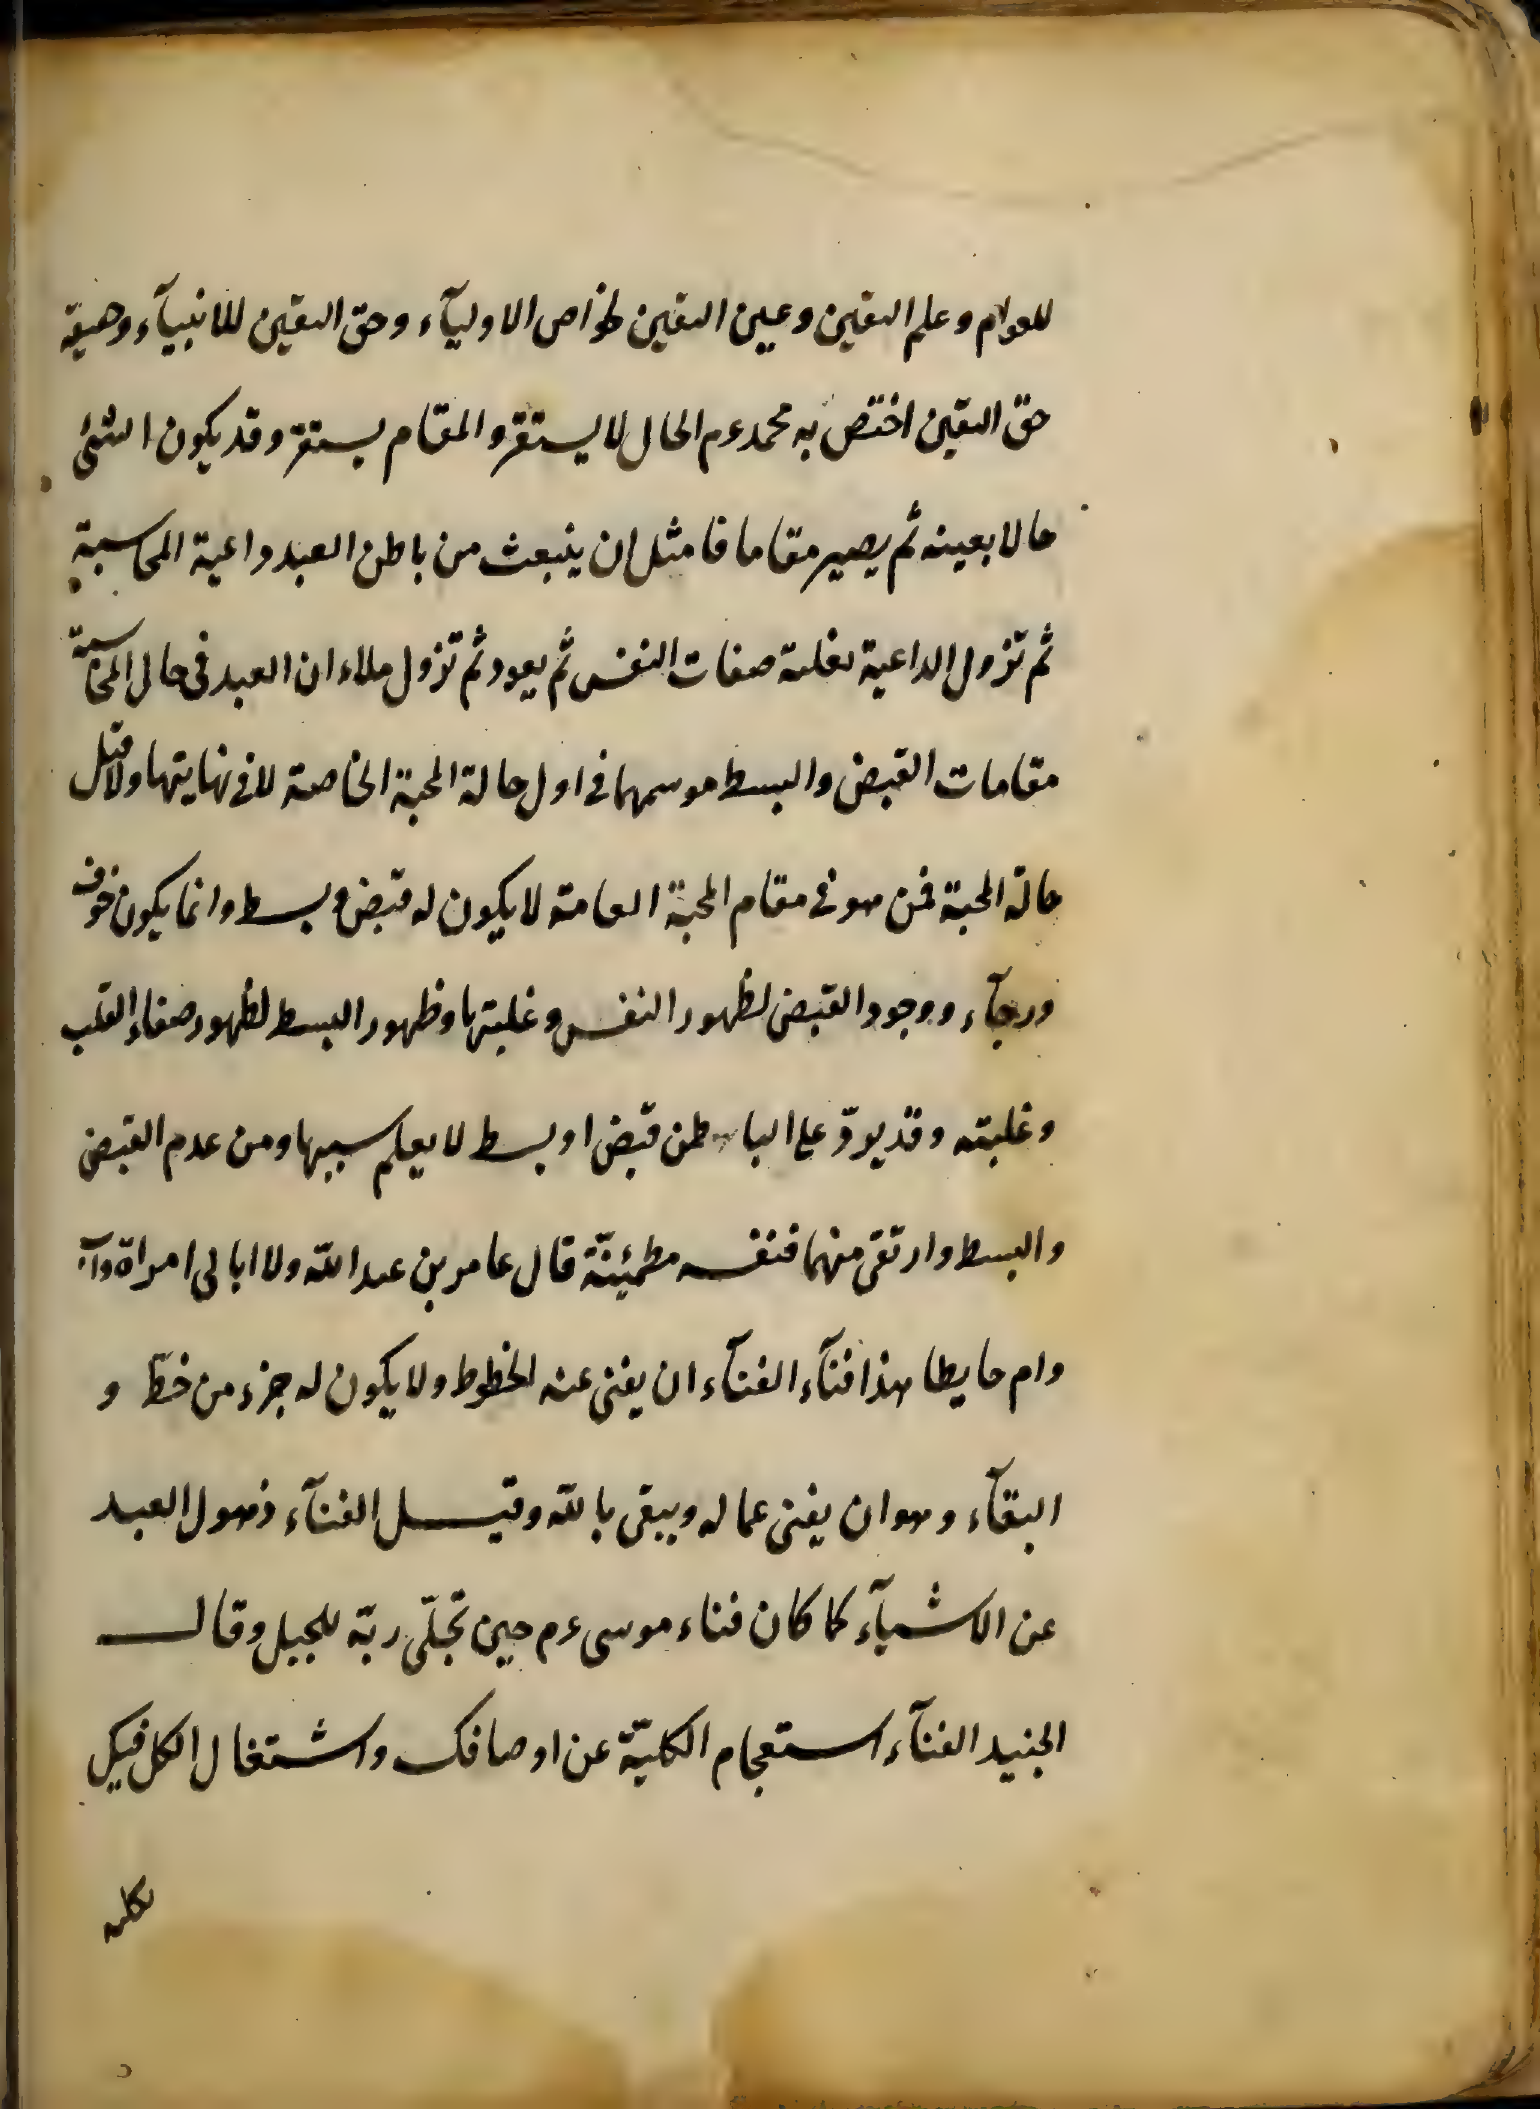 للعوام وعلم اليقين وعين اليقين لخواص الاوليآء وحق اليقين للانبيآء وحقيقة
حق اليقين اختص به محمد عم الحال لا يستقر والمقام يستقر وقد يكون الشئ
حالا بعينه ثم يصير مقاما فا مثل ان ينبعث من باطن العبد داعية المحاسبة
ثم تزول الداعية لغلبة صفات النفس ثم يعود ثم تزول ملاء ان العبد فى حال المحاسبة
مقامات القبض والبسط موسمهما فى اول حالة المحبة الخاصة لا فى نهايتها ولا قبل
حالة المحبة فمن هو فى مقام المحبة العامة لا يكون له قبض وبسط وانما يكون خوف
ورجآء ووجود القبض لظهور النفس وغلبتها وظهور البسط لظهور صفاء القلب
وغلبته وقد يردّ على الباطن قبض او بسط لا يعلم سببها ومن عدم القبض
والبسط وارتقى منهما فنفسه مطمئنّة قال عامر بن عبد الله ولا ابالى امراة رآ
وام حايطا هذا فنآء الفنآء ان يفنى عنه الخطوط ولا يكون له جزء من خظّ و
البقآء وهو ان يفنى عما له ويبقى بالله وقيل الفنآء ذهول العبد
عن الاشيآء كما كان فناء موسى عم حين تجلّى ربّه للجبل وقال
الجنيد الفنآء استعجام الكليّة عن اوصافك واشتغال الكل فيكل
بكليه